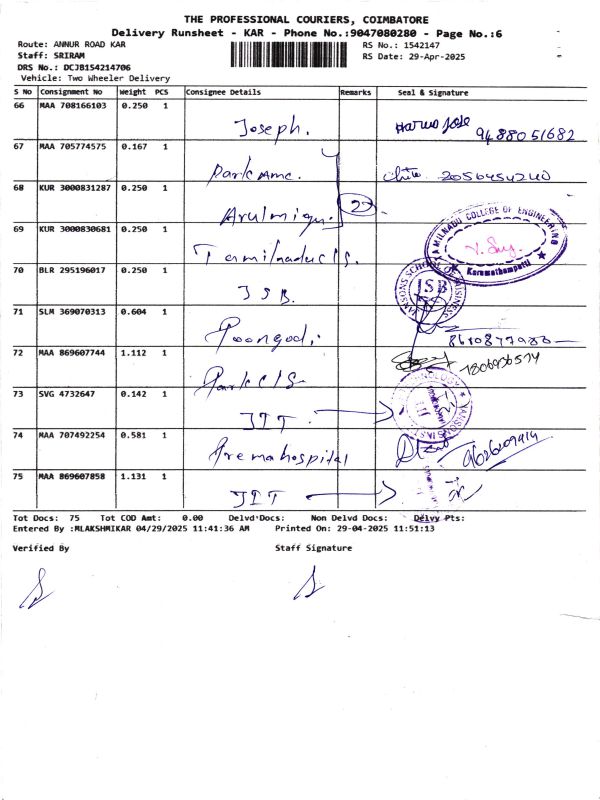 THE PROFESSIONAL COURIERS, COIMBATORE
Delivery Runsheet - KAR - Phone No.:9047080280 - Page No.:6
Route: ANNUR ROAD KAR
RS No.: 1542147
Staff: SRIRAM
RS Date: 29-Apr-2025
DRS No.: DCJB154214706
Vehicle: Two Wheeler Delivery
S No Consignment No Weight PCS Consignee Details Remarks Seal & Signature
66 MAA 708166103 0.250 1
Joseph. 9488051682
67 MAA 705774575 0.167 1
68 KUR 3000831287 0.250 1
Arulmigu.
69 KUR 3000830681 0.250 1
TAMILNADU COLLEGE OF ENGINEERING
Karumathampatti
70 BLR 295196017 0.250 1
JSB.
JSB
71 SLM 369070313 0.604 1
Poongodi
72 MAA 869607744 1.112 1
73 SVG 4732647 0.142 1
74 MAA 707492254 0.581 1
Premahospital 9626209414
75 MAA 869607858 1.131 1
Tot Docs: 75 Tot COD Amt: 0.00 Delvd Docs: Non Delvd Docs: Delvy Pts:
Entered By :MLAKSHMIKAR 04/29/2025 11:41:36 AM Printed On: 29-04-2025 11:51:13
Verified By Staff Signature